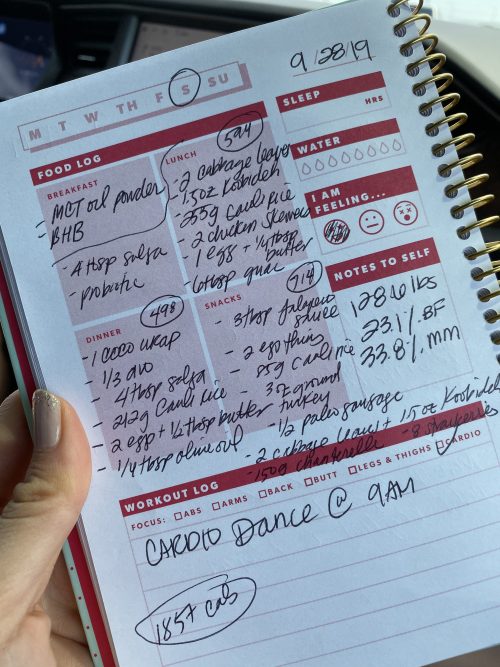 M T W TH F S SU
9/28/19
SLEEP
HRS
WATER
I AM FEELING...
NOTES TO SELF
128.6 lbs
23.1% BF
33.8% MM
FOOD LOG
BREAKFAST
- MCT oil powder
- BHB
- 4 tbsp salsa
- probiotic
LUNCH
594
- 2 cabbage leaves
- 1.5oz Koobideh
- 255g Cauli rice
- 2 chicken skewers
- 1 egg + 1/2 tbsp butter
- 6 tbsp guac
DINNER
498
- 1 COCO WRAP
- 1/3 avo
- 4 tbsp salsa
- 212g Cauli rice
- 2 egg + 1/2 tbsp butter
- 1/4 tbsp olive oil
SNACKS
714
- 3 tbsp jalapeno sauce
- 2 egg thins
- 85g Cauli rice
- 3oz ground turkey
- 1/2 paleo sausage
- 2 cabbage leaves + 1.5oz Koobideh
- 150g chanterelle - 8 strawberries
WORKOUT LOG
FOCUS: ABS ARMS BACK BUTT LEGS & THIGHS CARDIO
CARDIO Dance @ 9AM
1857 cals